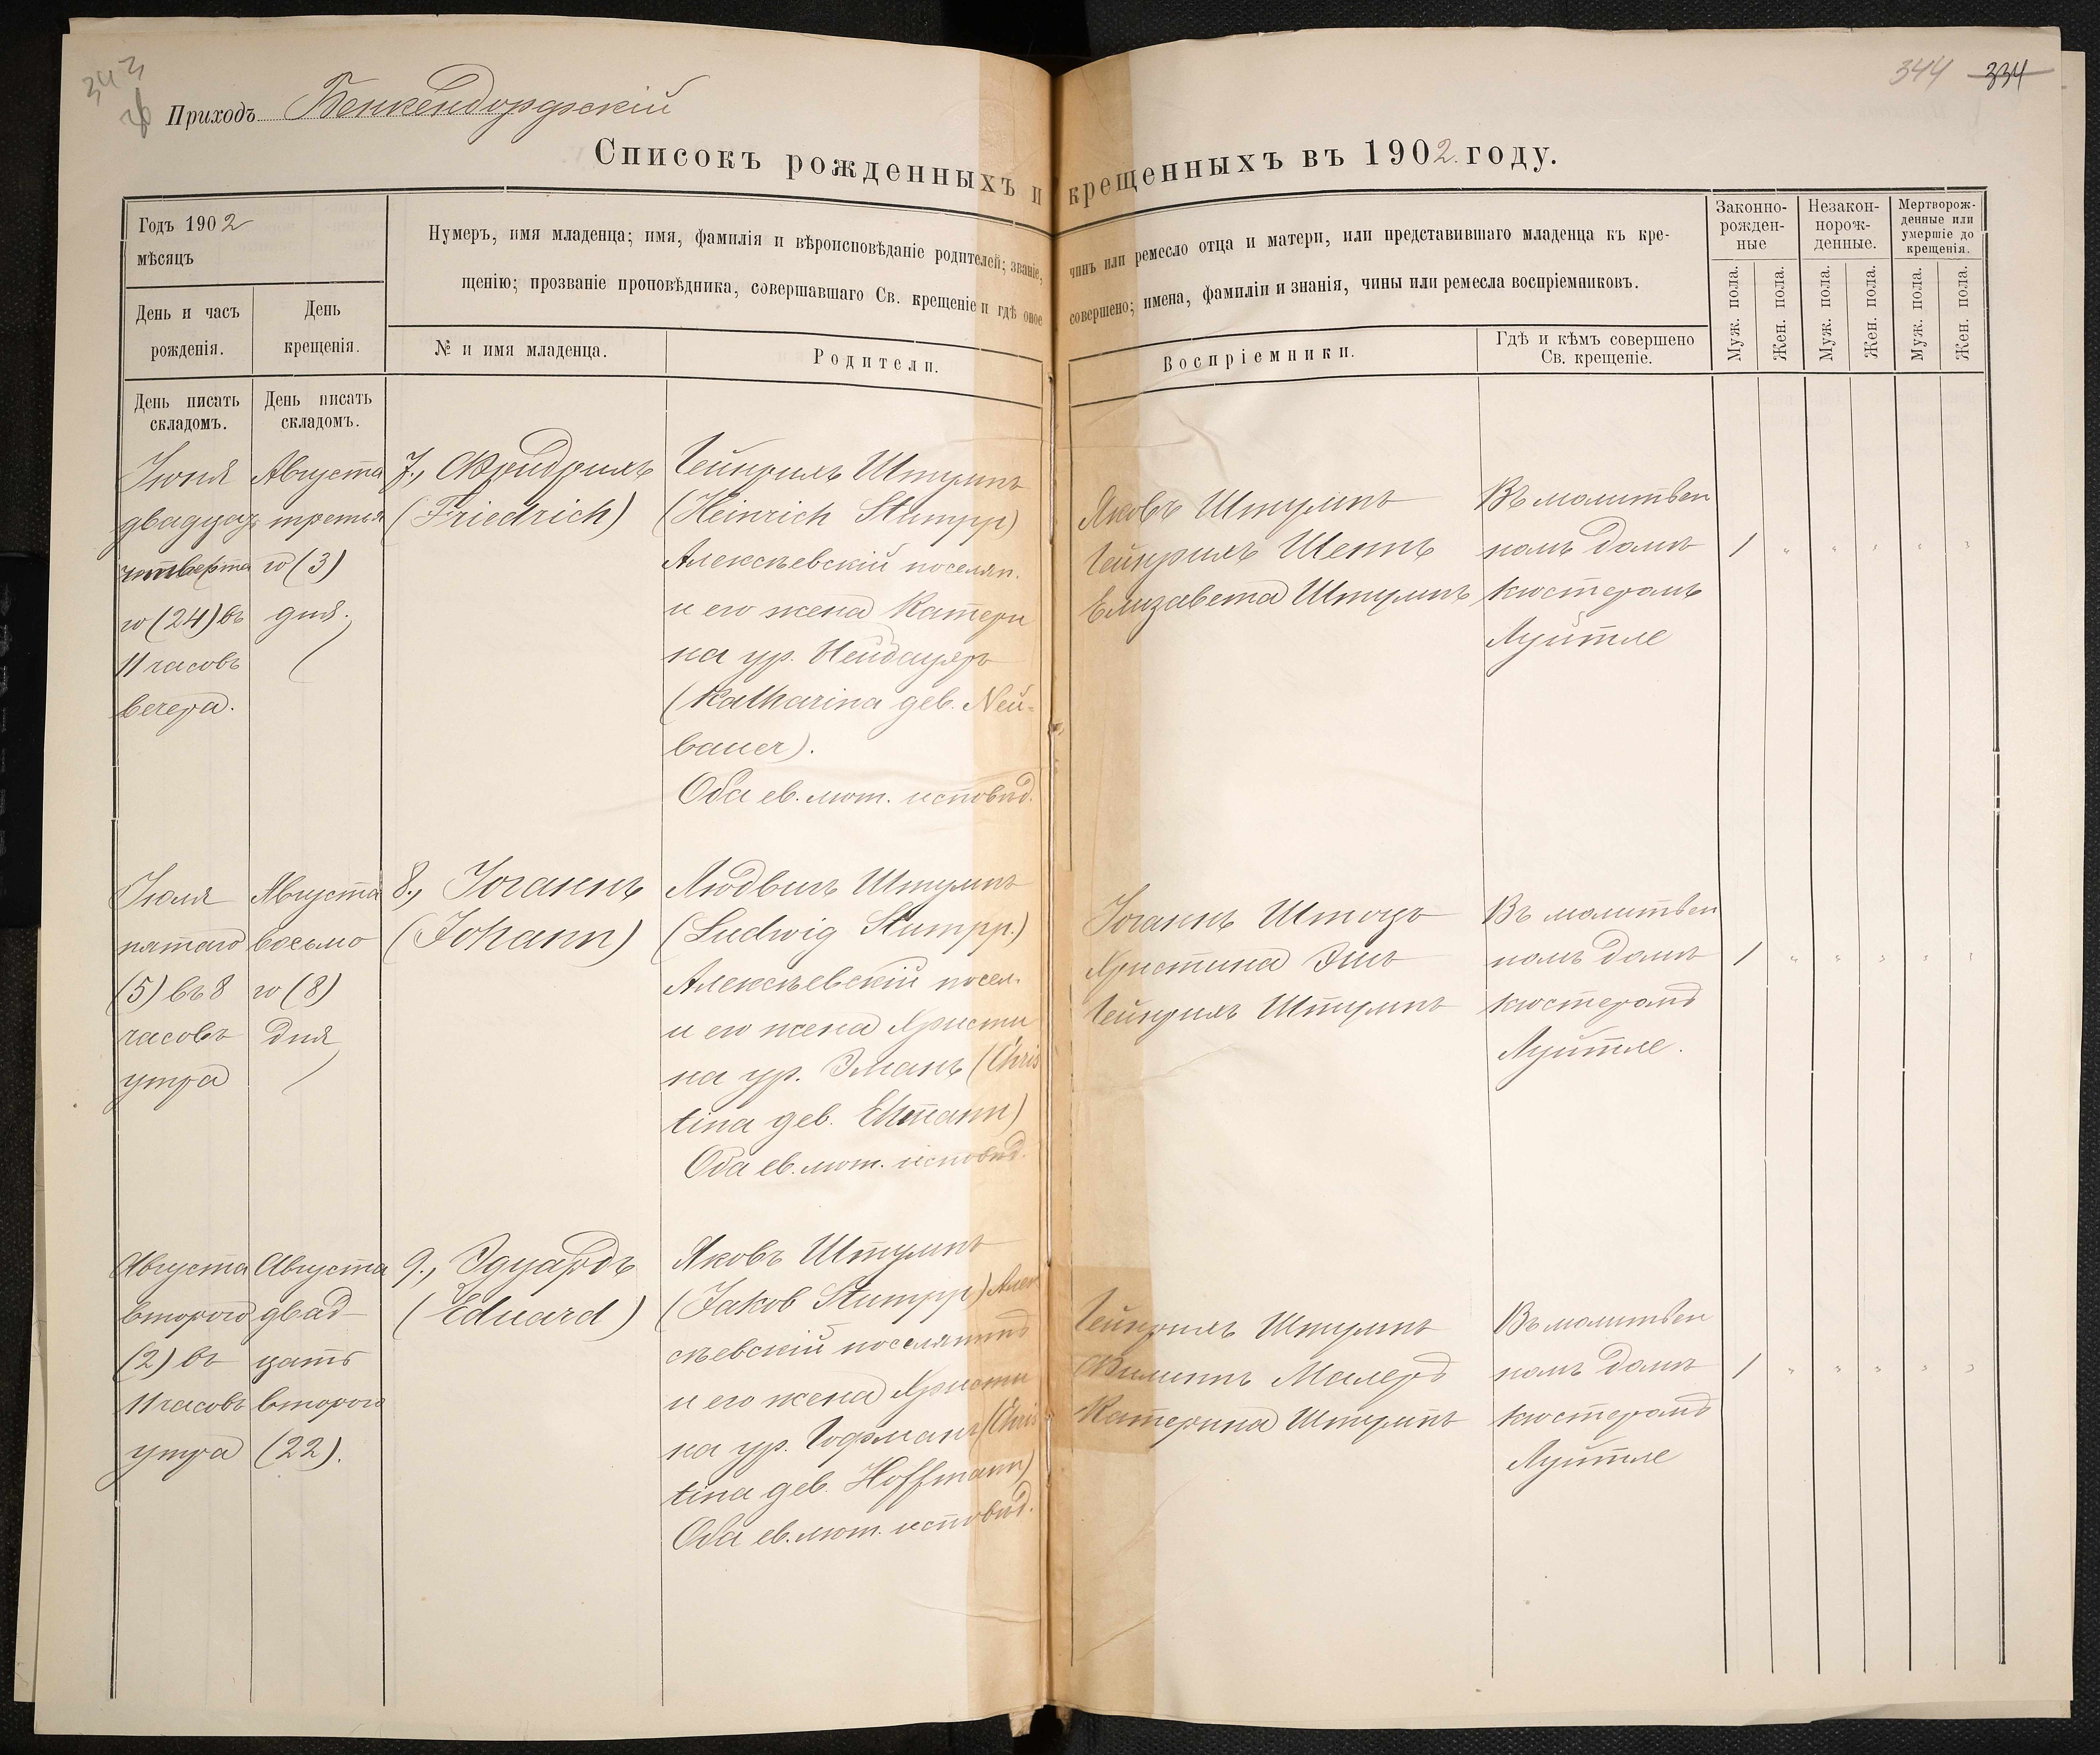 343
344 334
Приходъ Бенкендорфскій
Списокъ рожденныхъ и крещенныхъ въ 1902 году.
Годъ 1902
мѣсяцъ
День и часъ
рожденія.
День
крещенія.
Нумеръ, имя младенца; имя, фамилія и вѣроисповѣданіе родителей; званіе, чинъ или ремесло отца и матери, или представившаго младенца къ кре-
щенію; прозваніе проповѣдника, совершавшаго Св. крещеніе и гдѣ оное совершено; имена, фамиліи и знанія, чины или ремесла воспріемниковъ.
№ и имя младенца.
Родители.
Воспріемники.
Гдѣ и кѣмъ совершено
Св. крещеніе.
Законно-
рожден-
ные
Незакон-
норож-
денные.
Мертворож-
денные или
умершіе до
крещенія.
Муж. пола.
Жен. пола.
Муж. пола.
Жен. пола.
Муж. пола.
Жен. пола.
День писать
складомъ.
День писать
складомъ.
Іюня
двадцать
четверта
го (24) въ
11 часовъ
вечера.
Августа
третья
го (3)
дня.
7., Фридрихъ
(Friedrich)
Гейнрихъ Штумпъ
(Heinrich Stumpp)
Алексѣевскій поселян.
и его жена Катери
на ур. Нейбауеръ
(Katharina geb. Neu-
bauer).
Оба ев. лют. исповѣд.
Яковъ Штумпъ
Гейнрихъ Шеппъ
Елизавета Штумпъ
Въ молитвен
номъ домѣ
кюстеромъ
Луйтле
1 " " " " "
Іюля
пятаго
(5) въ 8
часовъ
утра
Августа
восьмо
го (8)
дня
8., Іоганнъ
(Johann)
Людвигъ Штумпъ
(Ludwig Stumpp.)
Алексѣевскій посел.
и его жена Христи
на ур. Эманъ (Chris
tina geb. Ehmann)
Оба ев. лют. исповѣд.
Іоганнъ Штоцъ
Христина
Гейнрихъ Штумпъ
Въ молитвен
номъ домѣ
кюстеромъ
Луйтле.
1 " " " " "
Августа
второго
(2) въ
11 часовъ
утра
Августа
двад
цать
второго
(22).
9., Эдуардъ
(Eduard)
Яковъ Штумпъ
(Jakob Stumpp) Алек
сѣевскій поселянинъ
и его жена Христи
на ур. Гофманъ (Chris
tina geb. Hoffmann)
Оба ев. лют. исповѣд.
Гейнрихъ Штумпъ
Филиппъ Малеръ
Катерина Штумпъ
Въ молитвен
номъ домѣ
кюстеромъ
Луйтле
1 " " " " "